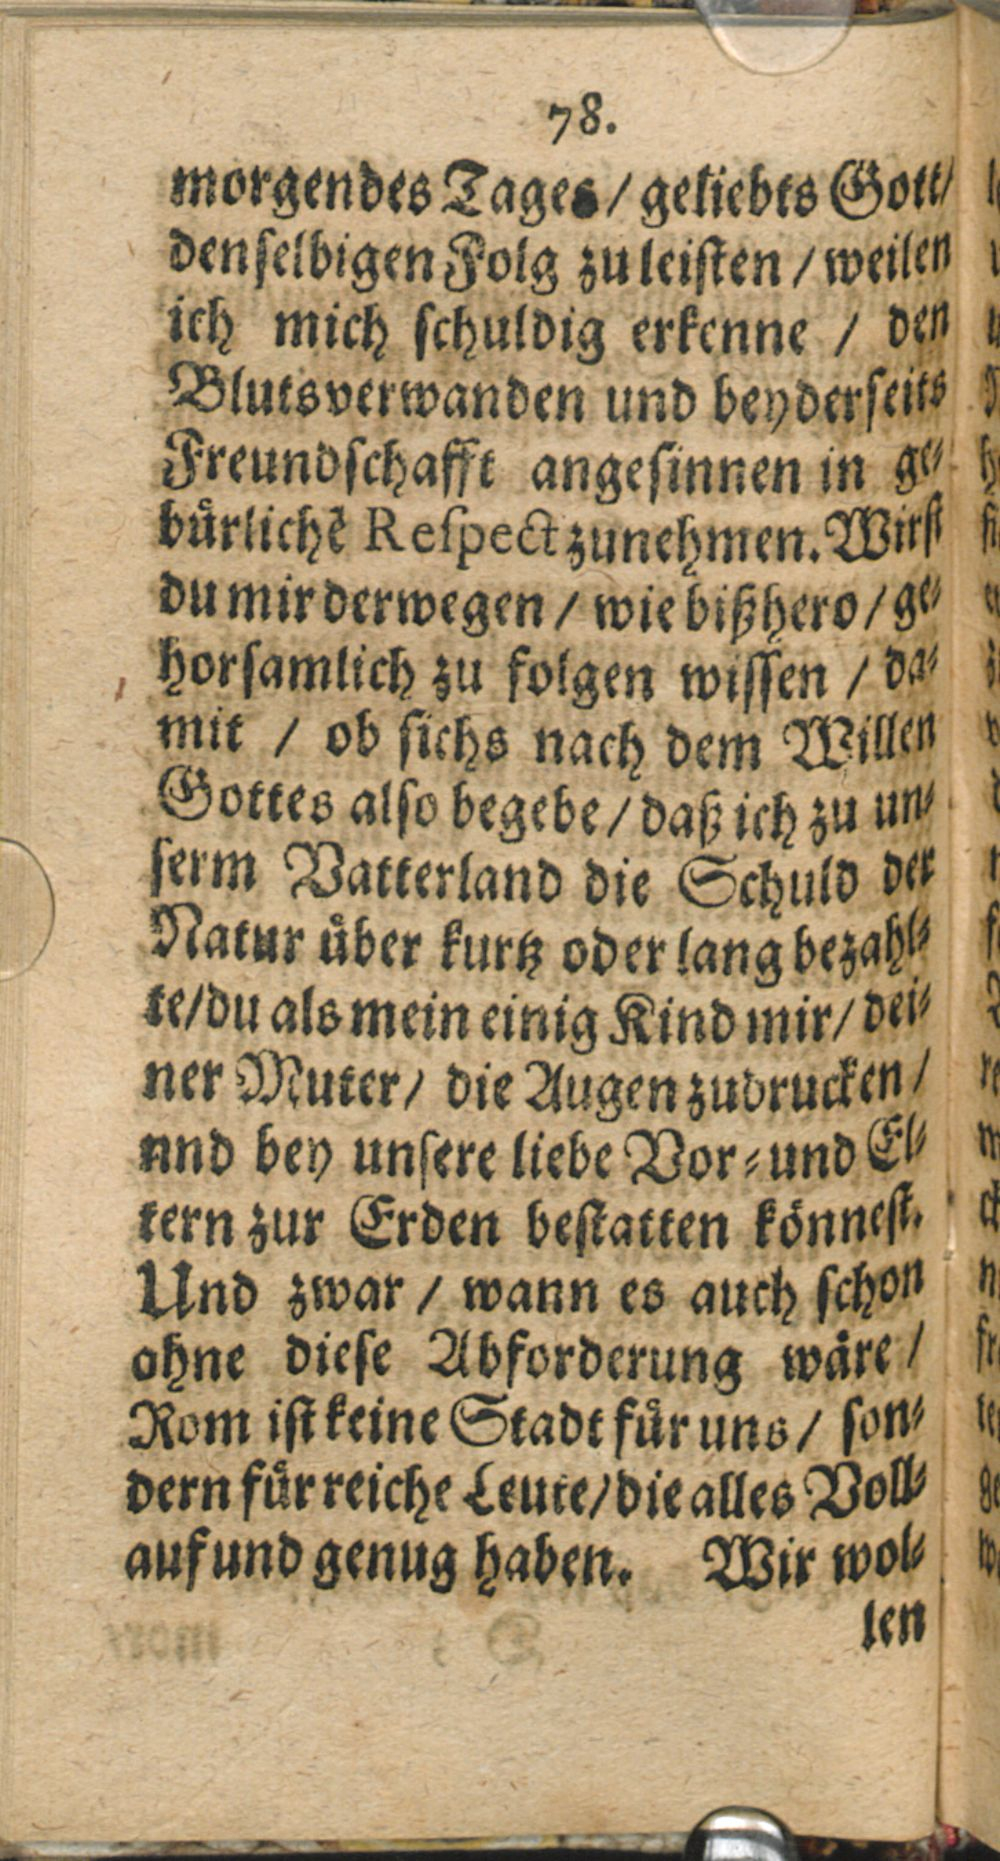 78.
morgendes Tages / geliebts Gott/
denselbigen Folg zu leisten / weilen
ich mich schuldig erkenne / den
Blutsverwanden und beyderseits
Freundschafft angesinnen in ge-
bürlichẽ Respect zunehmen. Wirst
du mir derwegen / wie bißhero / ge-
horsamlich zu folgen wissen / da-
mit / ob sichs nach dem Willen
Gottes also begebe / daß ich zu un-
serm Vatterland die Schuld der
Natur über kurtz oder lang bezahl-
te/du als mein einig Kind mir/ dei-
ner Muter/ die Augen zudrucken /
nnd bey unsere liebe Vor- und El-
tern zur Erden bestatten könnest.
Und zwar / wann es auch schon
ohne diese Abforderung wäre /
Rom ist keine Stadt für uns / son-
dern für reiche Leute/die alles Voll-
auf und genug haben. Wir wol-
len